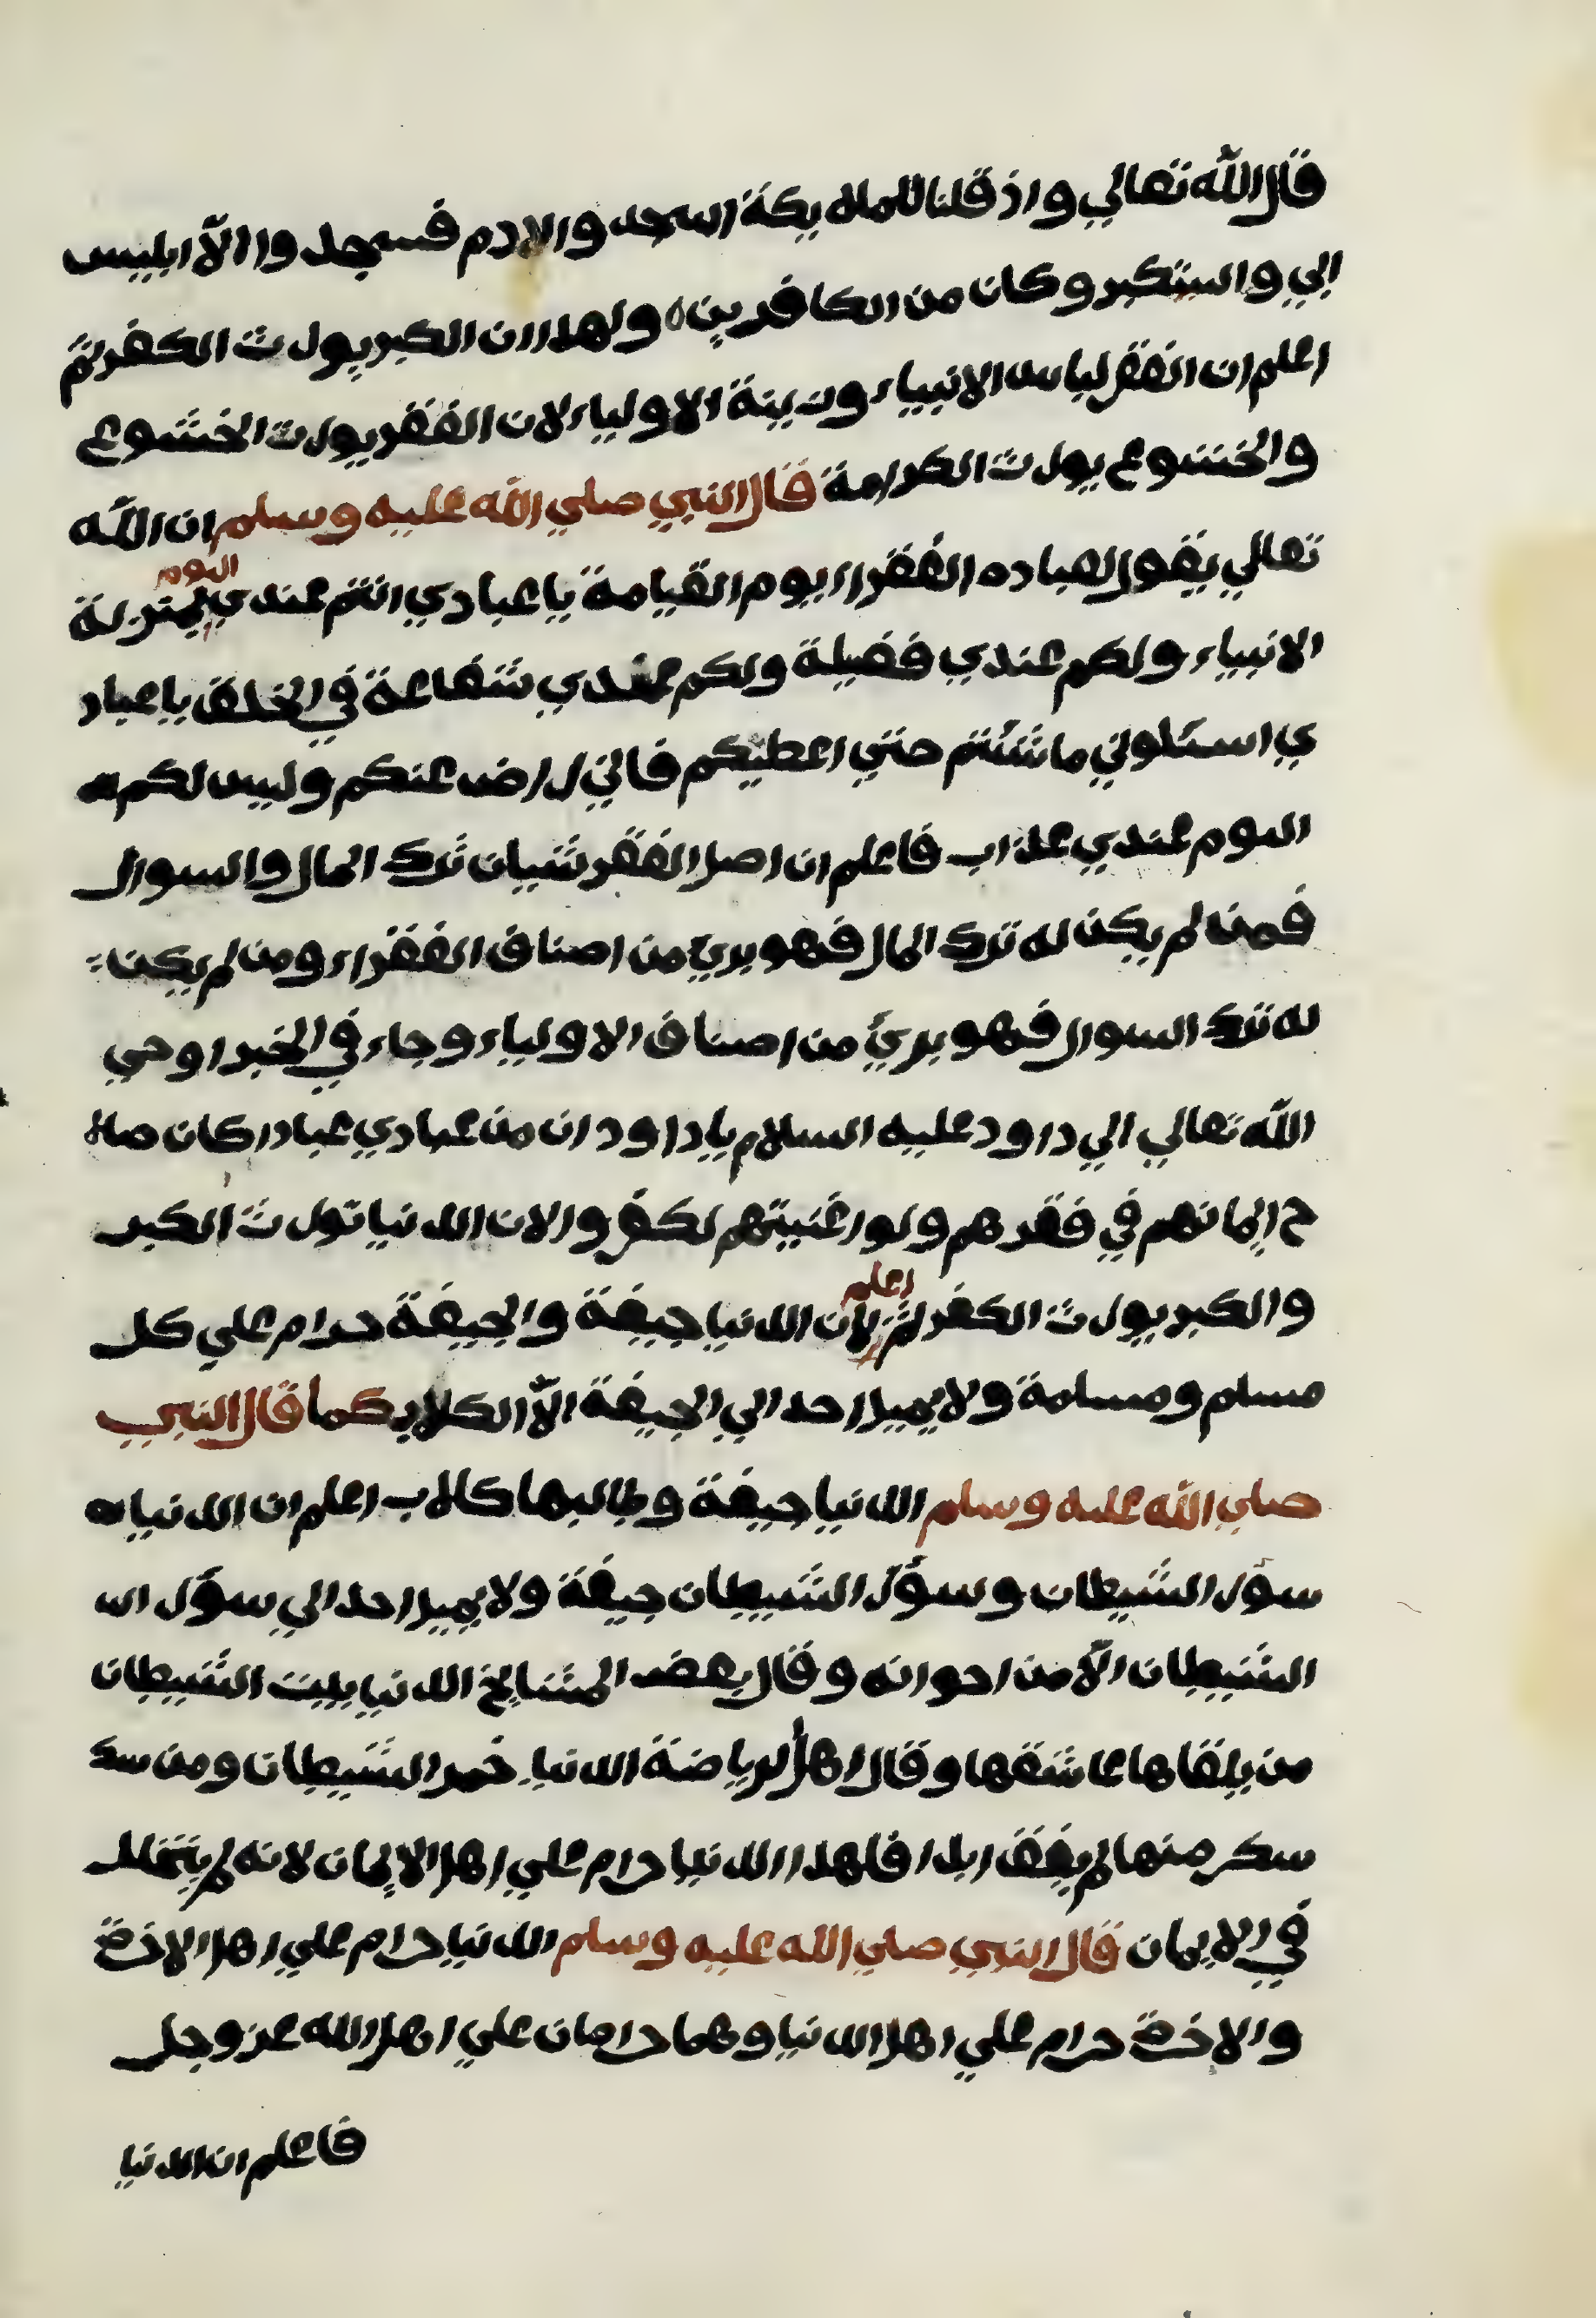 قال الله تعالي واذ قلنا للملايكة اسجد والادم فسجد وا الّا ابليس
ابي واستكبر وكان من الكافرين ولهذا ان الكبر يولد ث الكفر ثمّ
اعلم ان الفقر لباس الانبياء وزينة الاولياء لان الفقر يورث الخشوع
والخشوع يورث الكرامة قال النبي صلي الله عليه وسلم ان الله
تعالي يقول لعباده الفقراء يوم القيامة يا عبادي انتم عندي اليوم بمنزلة
الانبياء ولكم عندي فضيلة ولكم عندي شفاعة في الخلق يا عباد
ي اسئلوني ما شئتم حتي اعطيكم فاني لراض عنكم وليس لكم
اليوم عندي عذاب فاعلم ان اصل الفقر شيان ترك المال والسوال
فمن لم يكن له ترك المال فهو بريّ من اصناف الفقراء ومن لم يكن
له ترك السوال فهو بريّ من اصناف الاولياء وجاء في الخبر اوحي
الله تعالي الي داود عليه السلام يا داود ان من عبادي عبادا كان صا
ح ايمانهم في فقرهم ولو اغنيتهم لكفر والان الدنيا تورث الكبر
والكبر يورث الكفر ثمّ اعلم لان الدنيا جيفة والجيفة حرام علي كل
مسلم ومسلمة ولا يميل احد الي الجيفة الّا الكلاب كما قال النبي
صلي الله عليه وسلم الدنيا جيفة وطالبها كلاب اعلم ان الدنيا
سؤل الشيطان وسؤل الشيطان جيفة ولا يميل احد الي سؤل ال
الشيطان الّا من احوانه وقال بعض المشايخ الدنيا بيت الشيطان
من يلقاها عاشقها وقال اهل الرياضة الدنيا خمر الشيطان ومن سك
سكر منها لم يفق ابدا فلهذا الدنيا حرام علي اهل الايمان لانه لم يتخلل
في الايمان قال النبي صلي الله عليه وسلم الدنيا حرام علي اهل الاخرة
والاخرة حرام علي اهل الدنيا وهما حرامان علي اهل الله عز وجل
فاعلم ان الدنيا